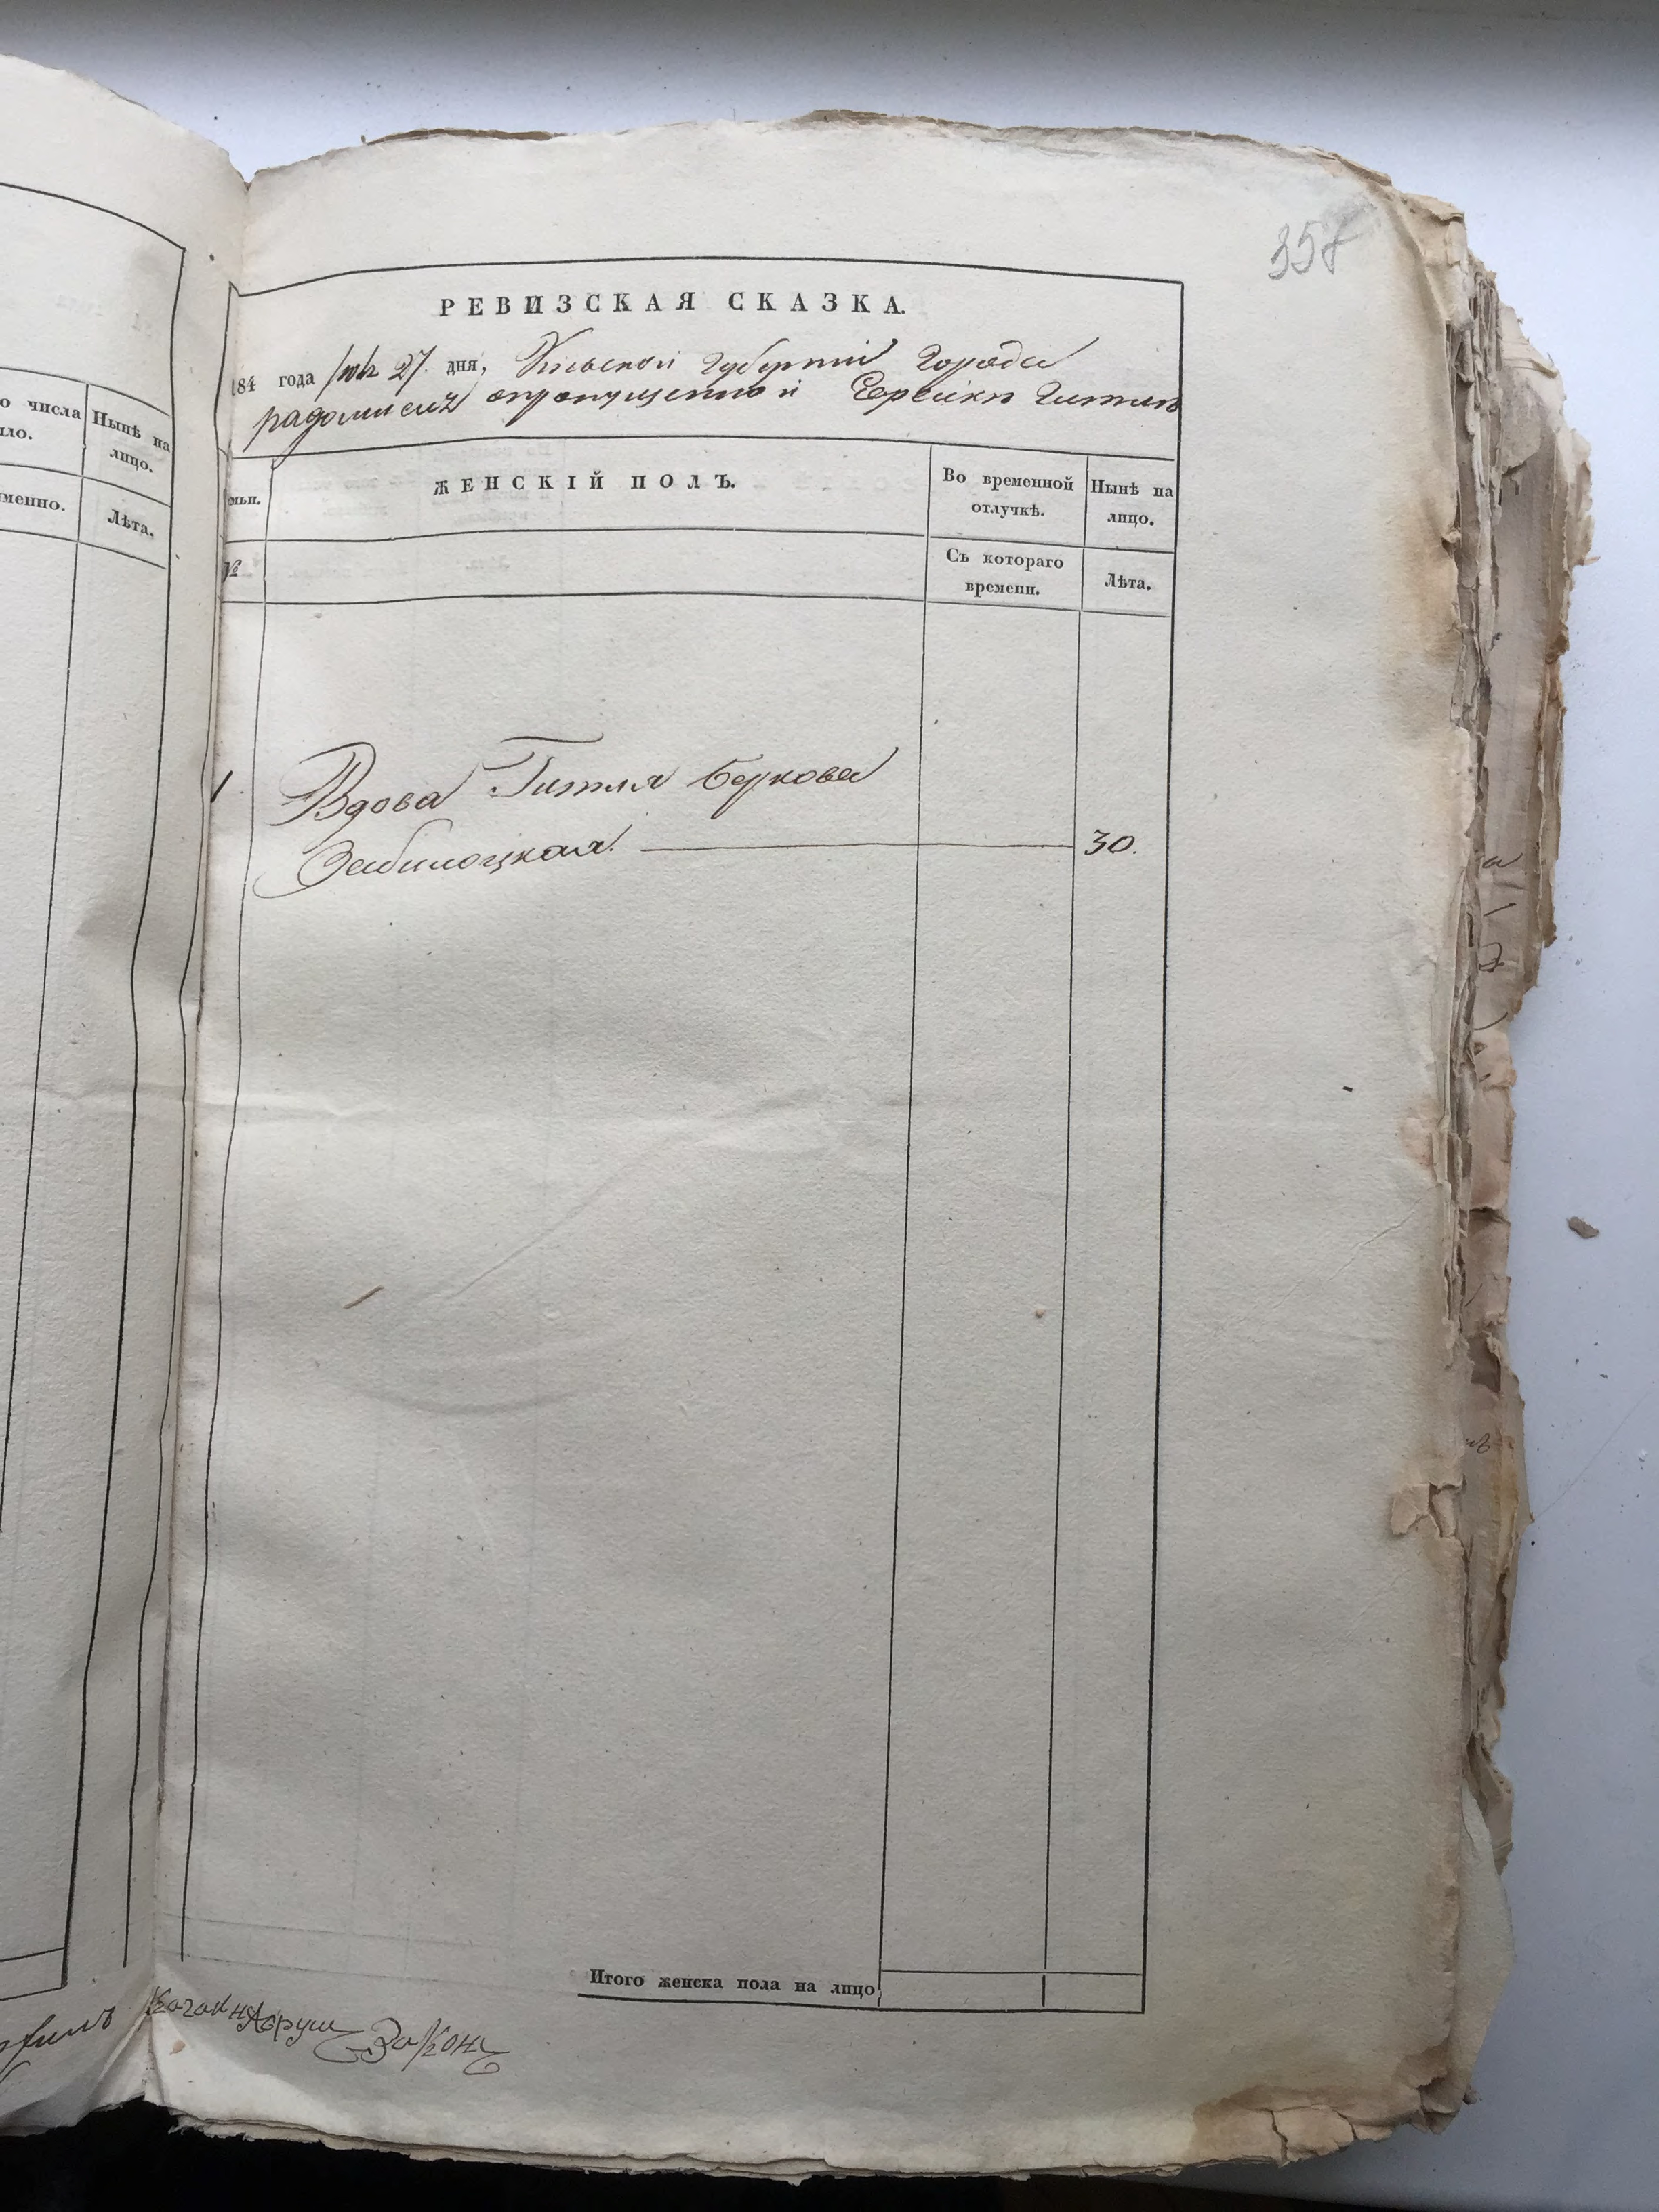 358
РЕВИЗСКАЯ СКАЗКА.
184 года Іюля 27 дня, Кіевской Губерніи Города
радомысля опропущенной Еврейки Гитли
о числа
ыло.
Нынѣ на
лицо.
менно.
Лѣта.
мьи.
ЖЕНСКІЙ ПОЛЪ.
Во временной
отлучкѣ.
Нынѣ на
лицо.
№
Съ котораго
времени.
Лѣта.
1
Вдова Гитля Беркова
Забилоцкая 30.
Итого женска пола на лицо